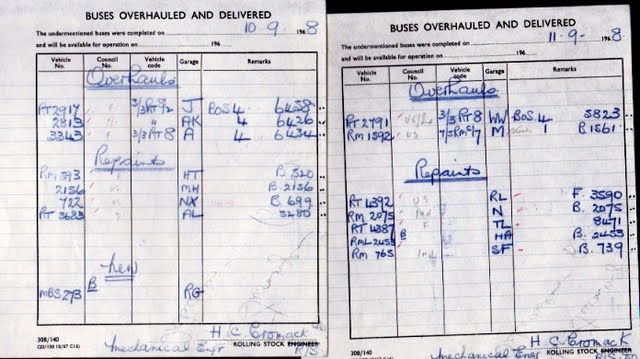 BUSES OVERHAULED AND DELIVERED
The undermentioned buses were completed on 10-9- 1968
and will be available for operation on 196
Vehicle No. Council No. Vehicle code Garage Remarks
Overhauls
RT2917 3/3RT8/2 J BOS 4 6458
2813 " AK 4 6426
3343 3/3RT8 A 4 6434
Repaints
RM 593 HT B.520
2156 US MH B.2156
722 US NX B.699
RT 3683 AL 5280
New
MBS 273 B RG
H. C. Cromack
308/140 Mechanical Engr ROLLING STOCK ENGINEER
BUSES OVERHAULED AND DELIVERED
The undermentioned buses were completed on 11-9- 1968.
and will be available for operation on 196
Vehicle No. Council No. Vehicle code Garage Remarks
Overhauls
RT 2791 3/3RT8 WW BOS 4 5823
RM 1592 US 7/5RM5/7 M 1 B1561
Repaints
RT 4392 US RL F. 3590
RM 2075 Ind N B. 2075
RT 4387 F TL 8471
RML 2453 B HA B. 2453
RM 765 Ind SF B. 739
H. C. Cromack
308/140 Mechanical Engr ROLLING STOCK ENGINEER